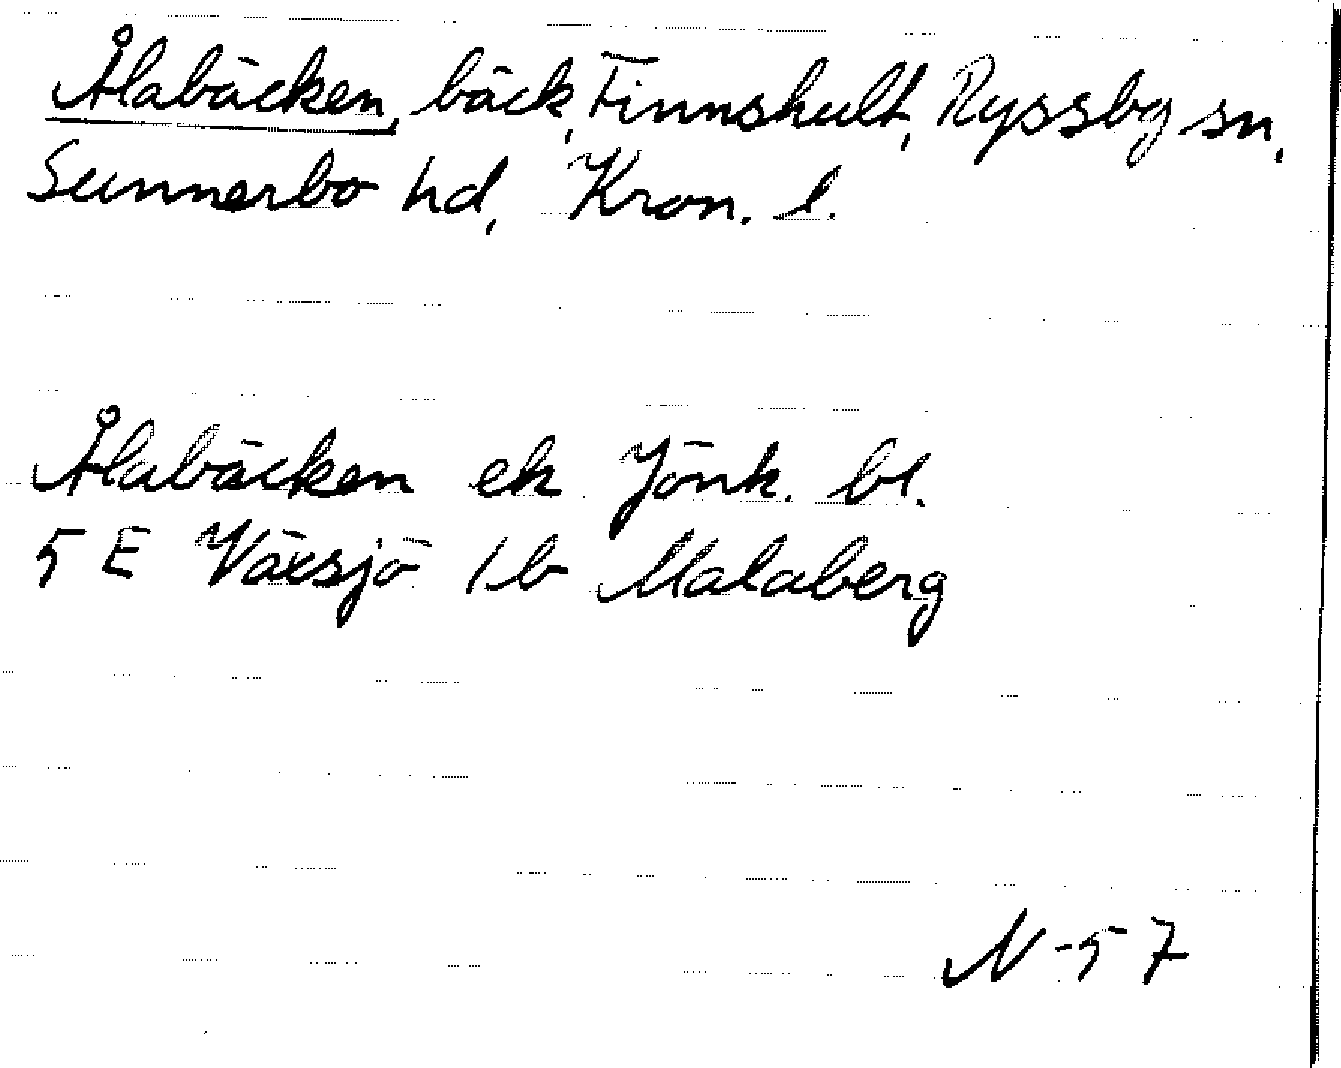 Ålabäcken, bäck, Finnshult, Ryssby sn,
Sunnerbo hd, Kron. l.
Ålabäcken ek Jönk. bl.
5 E Växsjö 1b Malaberg
N -57